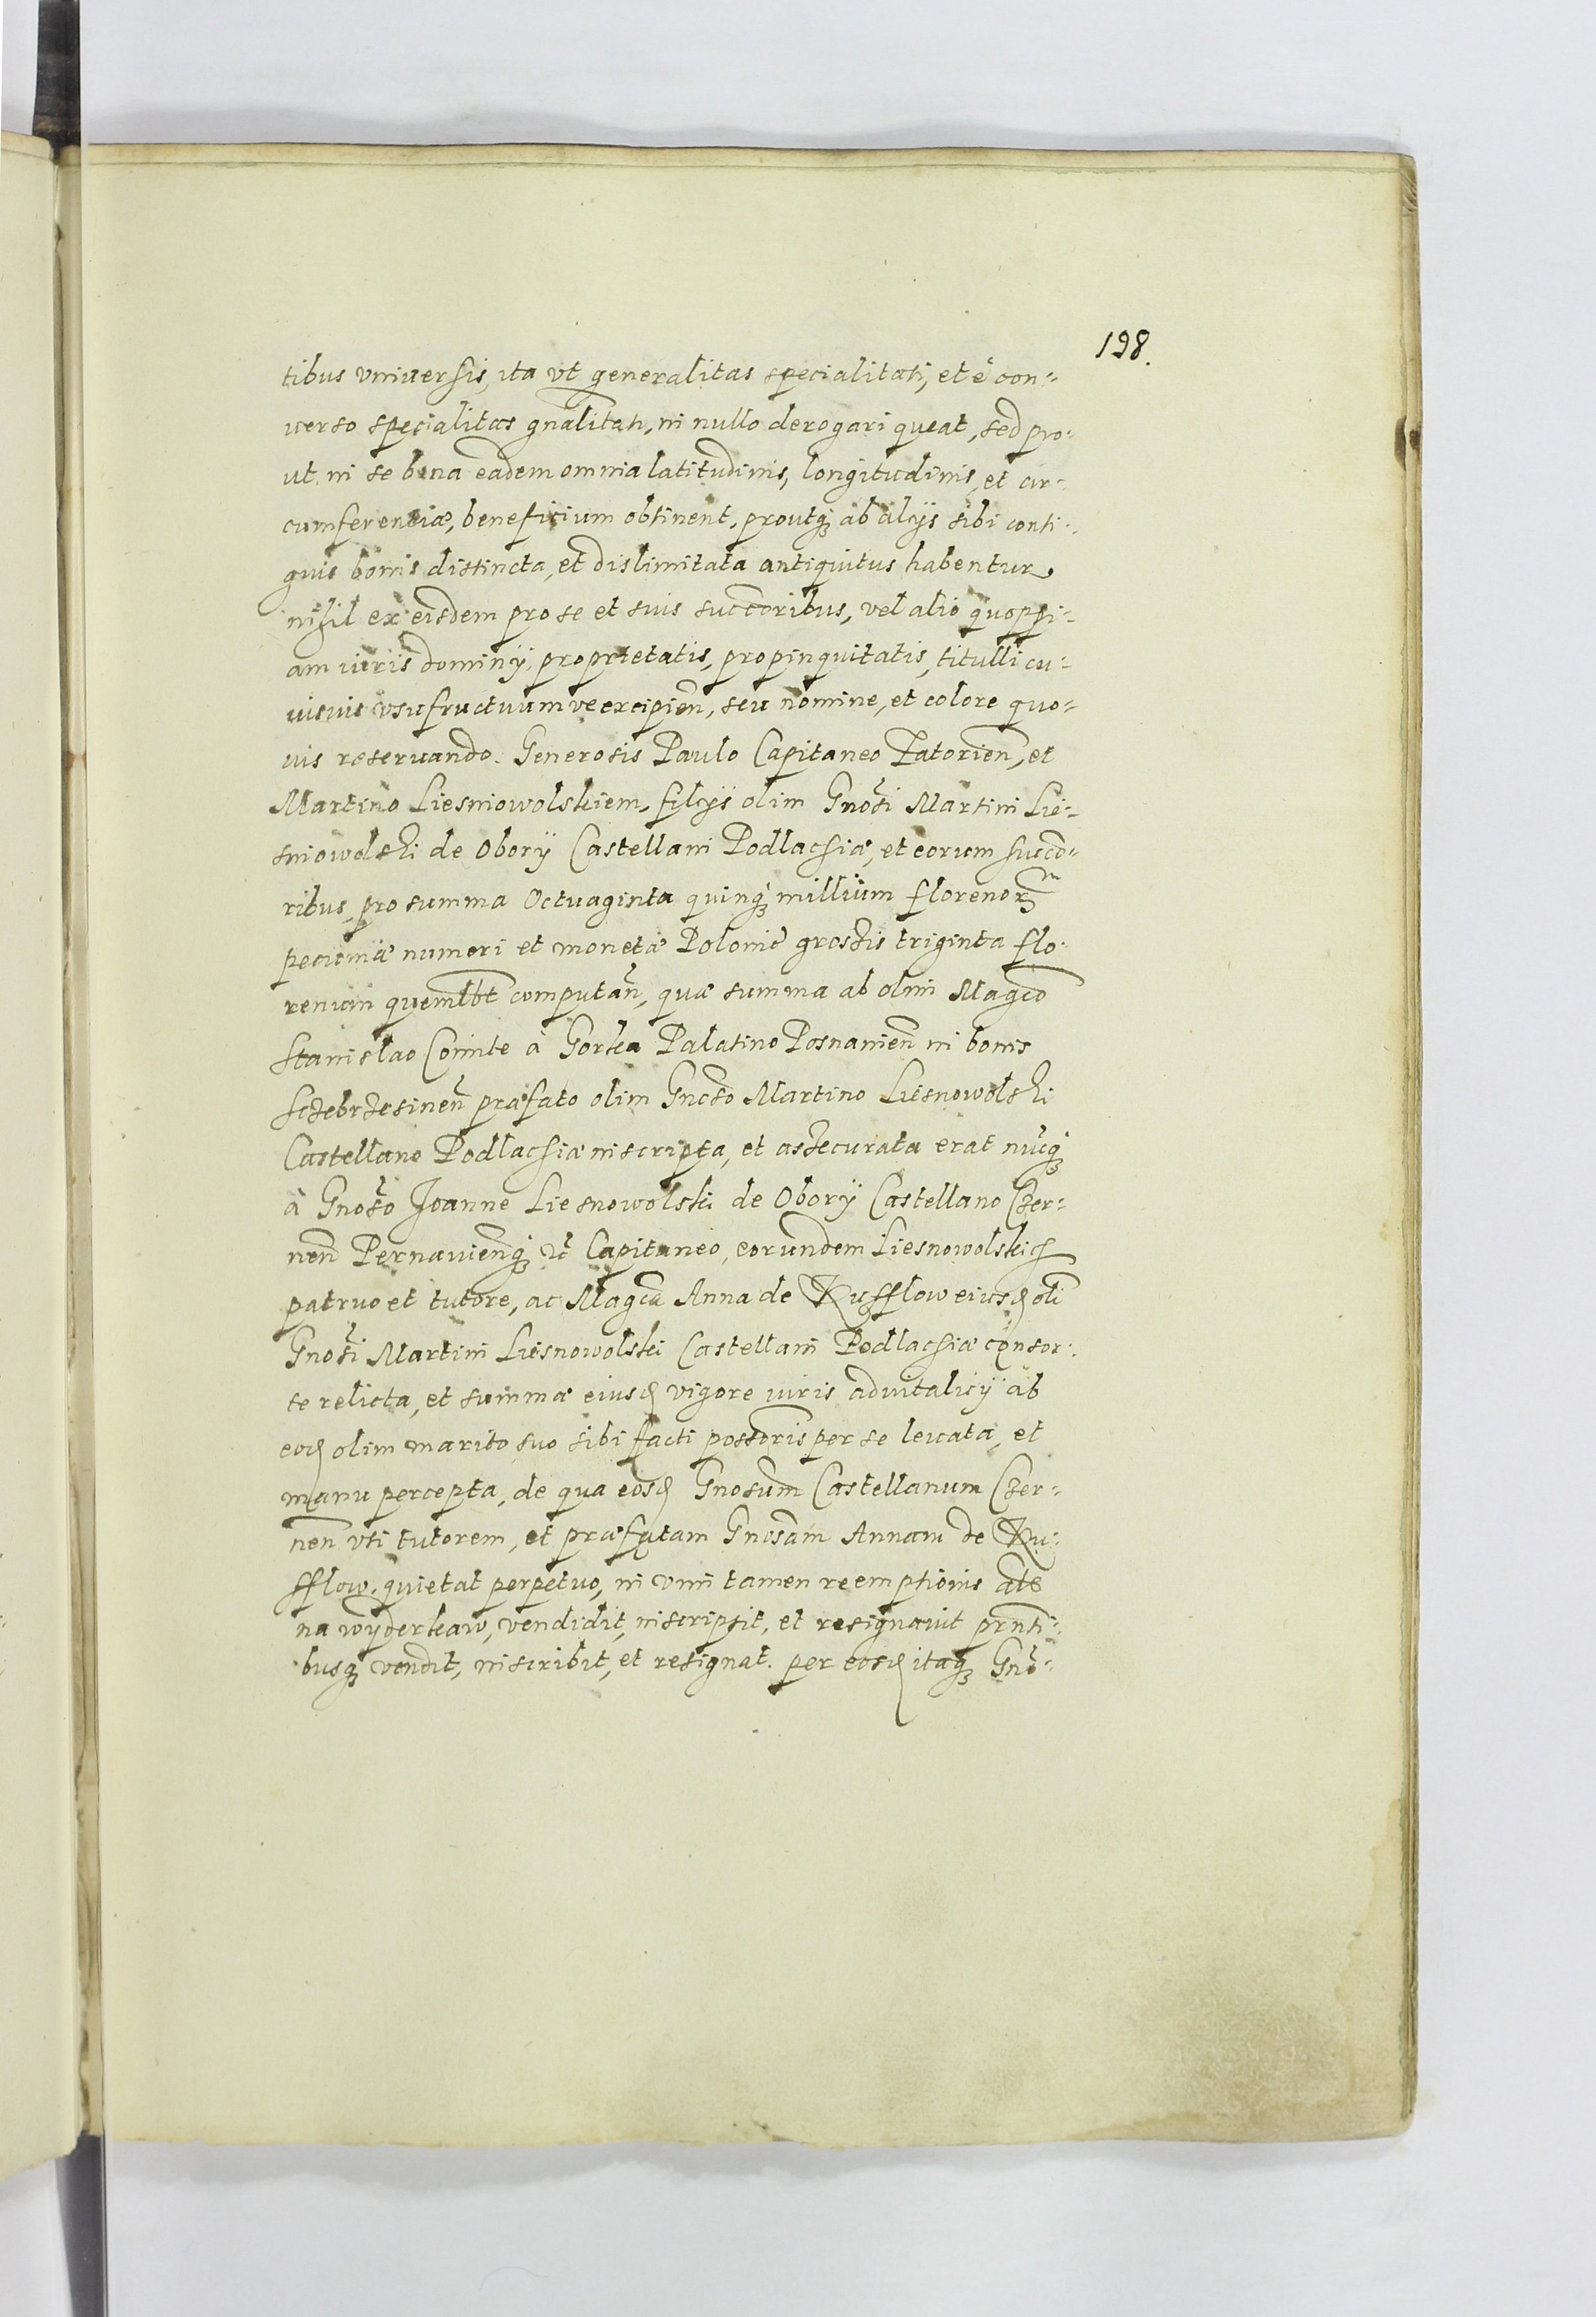 198.
tibus vniuersis, ita vt generalitas specialitati, et è con-
uerso specialitas gnalitati, in nullo derogari queat, sed pro-
ut in se bona eadem omnia latitudinis, longitudinis, et cir-
cumferentiæ, beneficium obtinent, proutq₃ ab alijs sibi conti-
guis bonis distincta, et dislimitata antiquitus habentur,
nihil ex eisdem pro se et suis succoribus, vel alio quoppi-
am iuris dominij, proprietatis, propinquitatis, titulli cu-
iusuis vsufructuumve excipien, seu nomine, et colore quo-
uis reseruando. Generosis Paulo Capitaneo Zatorien, et
Martino Liesniowolskiem, filijs olim Gnosi Martini Lie-
sniowolski de Obory Castellani Podlachiæ, et eorum succo-
ribus, pro summa Octuaginta quinq₃ millium florenorum
pecuniæ numeri et monetæ Poloniē grossis triginta flo-
renum quemlbt computan, quæ summa ab olim Magco
Stanislao Comite à Gorka Palatino Posnanien in bonis
Sczebrzesinen præfato olim Gnoso Martino Liesnowolski
Castellano Podlachiæ inscripta, et assecurata erat nucq₃
à Gnoso Joanne Liesnowolski de Obory Castellano Czer-
nen Pernauienq₃ etc Capitaneo, eorundem Liesnowolskich
patruo et tutore, ac Magca Anna de Kufflow eiusd oli
Gnosi Martini Liesnowolski Castellani Podlachiæ consor-
te relicta, et summæ eiusd vigore iuris aduitalicij ab
eod olim marito suo sibi facti possoris per se leuata, et
manu percepta, de qua eosd Gnosum Castellanum Czer-
nen vti tutorem, et præfatam Gnosam Annam de Ku-
fflow, quietat perpetuo, in vim tamen reemptionis als
na wyderkaw, vendidit, inscripsit, et resignauit prnti-
busq₃ vendit, inscribit, et resignat. per eosd itaq₃ Gno-